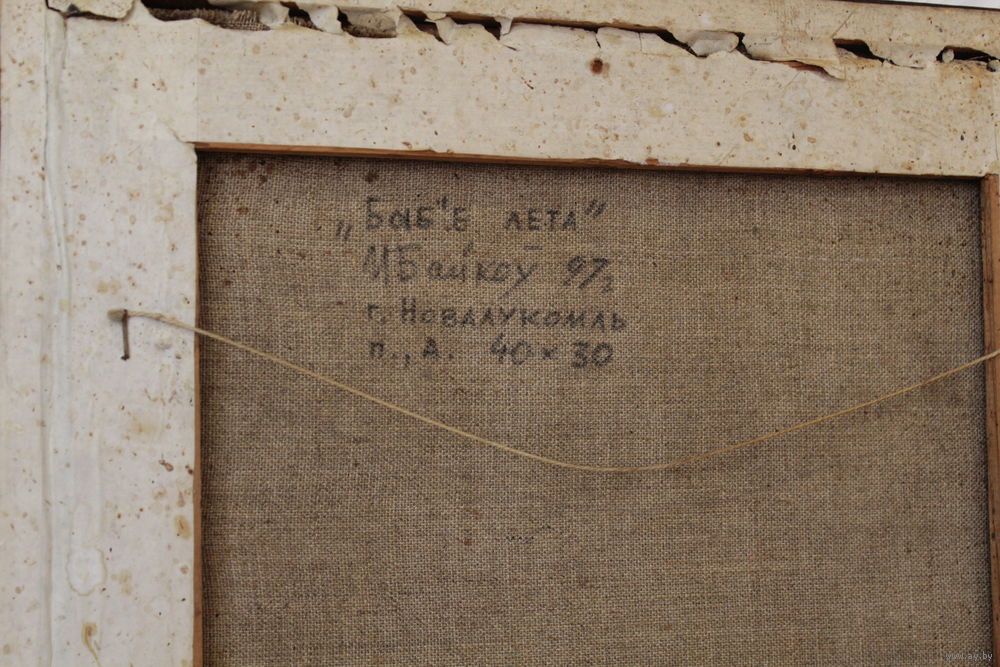 „Баб'е лета”
Байкоў 97г
г. Новалукомль
п., а. 40×30
www.ay.by